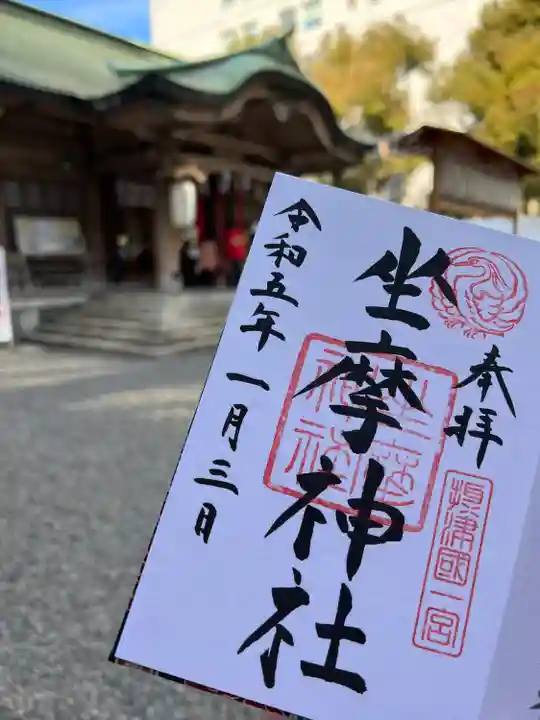 奉拝
摂津國一宮
坐摩神社
坐摩神社
令和五年一月三日